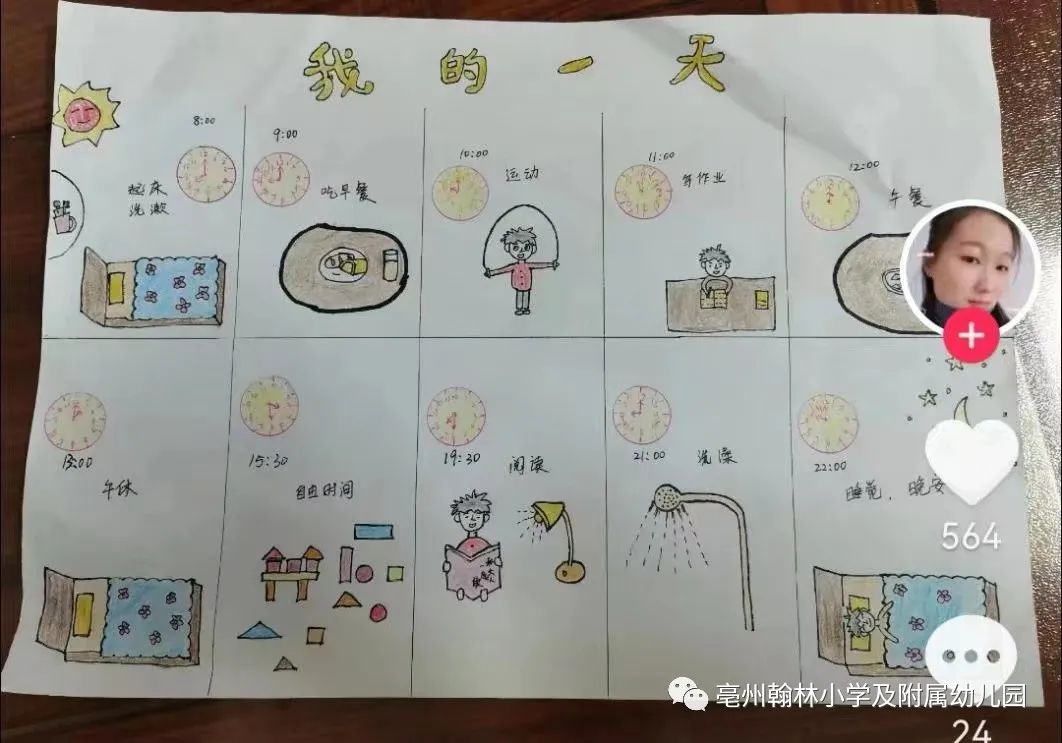 我的一天
8:00
起床
洗漱
9:00
吃早餐
10:00
运动
11:00
写作业
12:00
午餐
13:00
午休
15:30
自由时间
19:30
阅读
21:00
洗澡
22:00
睡觉，晚安
564
24
亳州翰林小学及附属幼儿园